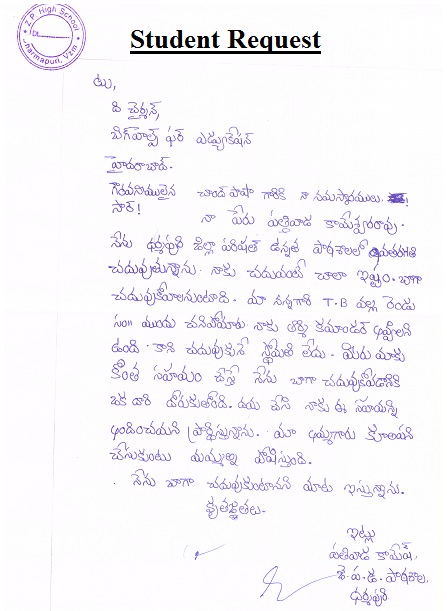 Z.P. High School
Dharmapuri, Vzm
Student Request
టు,
ది చైర్మన్,
బిగ్‌హెల్ప్ ఫర్ ఎడ్యుకేషన్
హైదరాబాద్.
గౌరవనీయులైన చాంద్ పాషా గారికి నా నమస్కారములు.
సార్! నా పేరు పతివాడ కామేశ్వరరావు.
నేను ధర్మపురి జిల్లా పరిషత్ ఉన్నత పాఠశాలలో తరగతి
చదువుతున్నాను. నాకు చదువంటే చాలా ఇష్టం. బాగా
చదువుకోవాలనుటుంది. మా నాన్నగారి T.B వల్ల రెండు
సం॥ ముందు చనిపోయారు. నాకు కమాండర్ అవ్వాలని
ఉంది. కాని చదువుకునే స్థోమత లేదు. మీరు మాకు
కొంత సహాయం చేస్తే నేను బాగా చదువుకోవడానికి
ఒక దారి దొరుకుతుంది. దయ చేసి నాకు ఈ సహాయాన్ని
అందించమని ప్రార్థిస్తున్నాను. మా అమ్మగారు కూలిపని
చేసుకుంటు మమ్మల్ని పోషిస్తుంది.
నేను బాగా చదువుకుంటానని మాట ఇస్తున్నాను.
కృతజ్ఞతలు.
ఇట్లు
పతివాడ కామేష్,
జి.ప.ఉ. పాఠశాల,
ధర్మపురి.